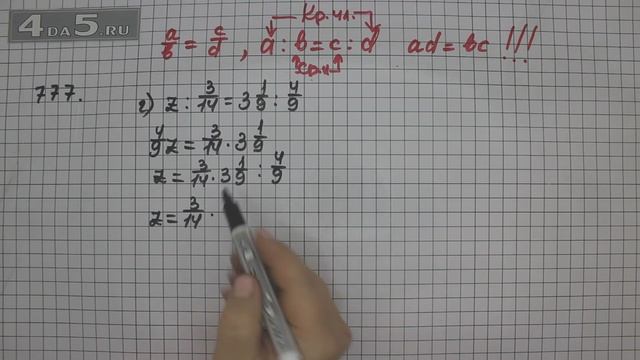 4DA5.RU
Кр.чл.
a/b = c/d , a : b = c : d ad = bc !!!
ср.ч
777.
г) z : 3/14 = 3 1/9 : 4/9
4/9 z = 3/14 · 3 1/9
z = 3/14 · 3 1/9 : 4/9
z = 3/14 ·